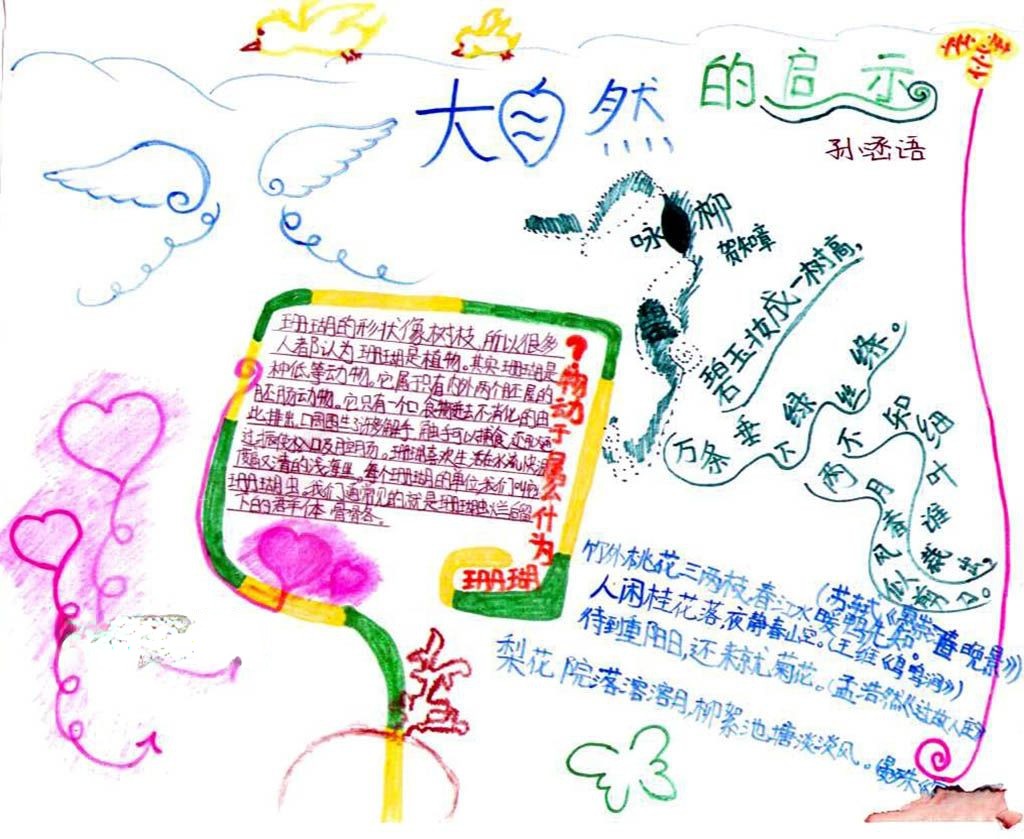 大自然的启示
孙涵语
咏柳
贺知章
碧玉妆成一树高,
万条垂下绿丝绦。
不知细叶谁裁出,
二月春风似剪刀。
珊瑚为什么属于动物?
珊瑚的形状像树枝,所以很多
人都认为珊瑚是植物。其实珊瑚是
种低等动物。它属只有内外两个胚层的
腔肠动物。它只有一个口,食物进去不消化的由
此排出。口周围生许多触手,触手可以捕食,还可以通
过振使水入口及腔肠。珊瑚喜欢生活在水流快温
度高又清的浅海里。每个珊瑚的单位,我们叫
珊瑚虫。我们通常见的就是珊瑚虫烂后留
下的群体骨骼。
竹外桃花三两枝,春江水暖鸭先知。(苏轼《惠崇春晚景》)
人闲桂花落,夜静春山空。(王维《鸟鸣涧》)
待到重阳日,还来就菊花。(孟浩然《过故人庄》
梨花院落溶溶月,柳絮池塘淡淡风。(晏殊